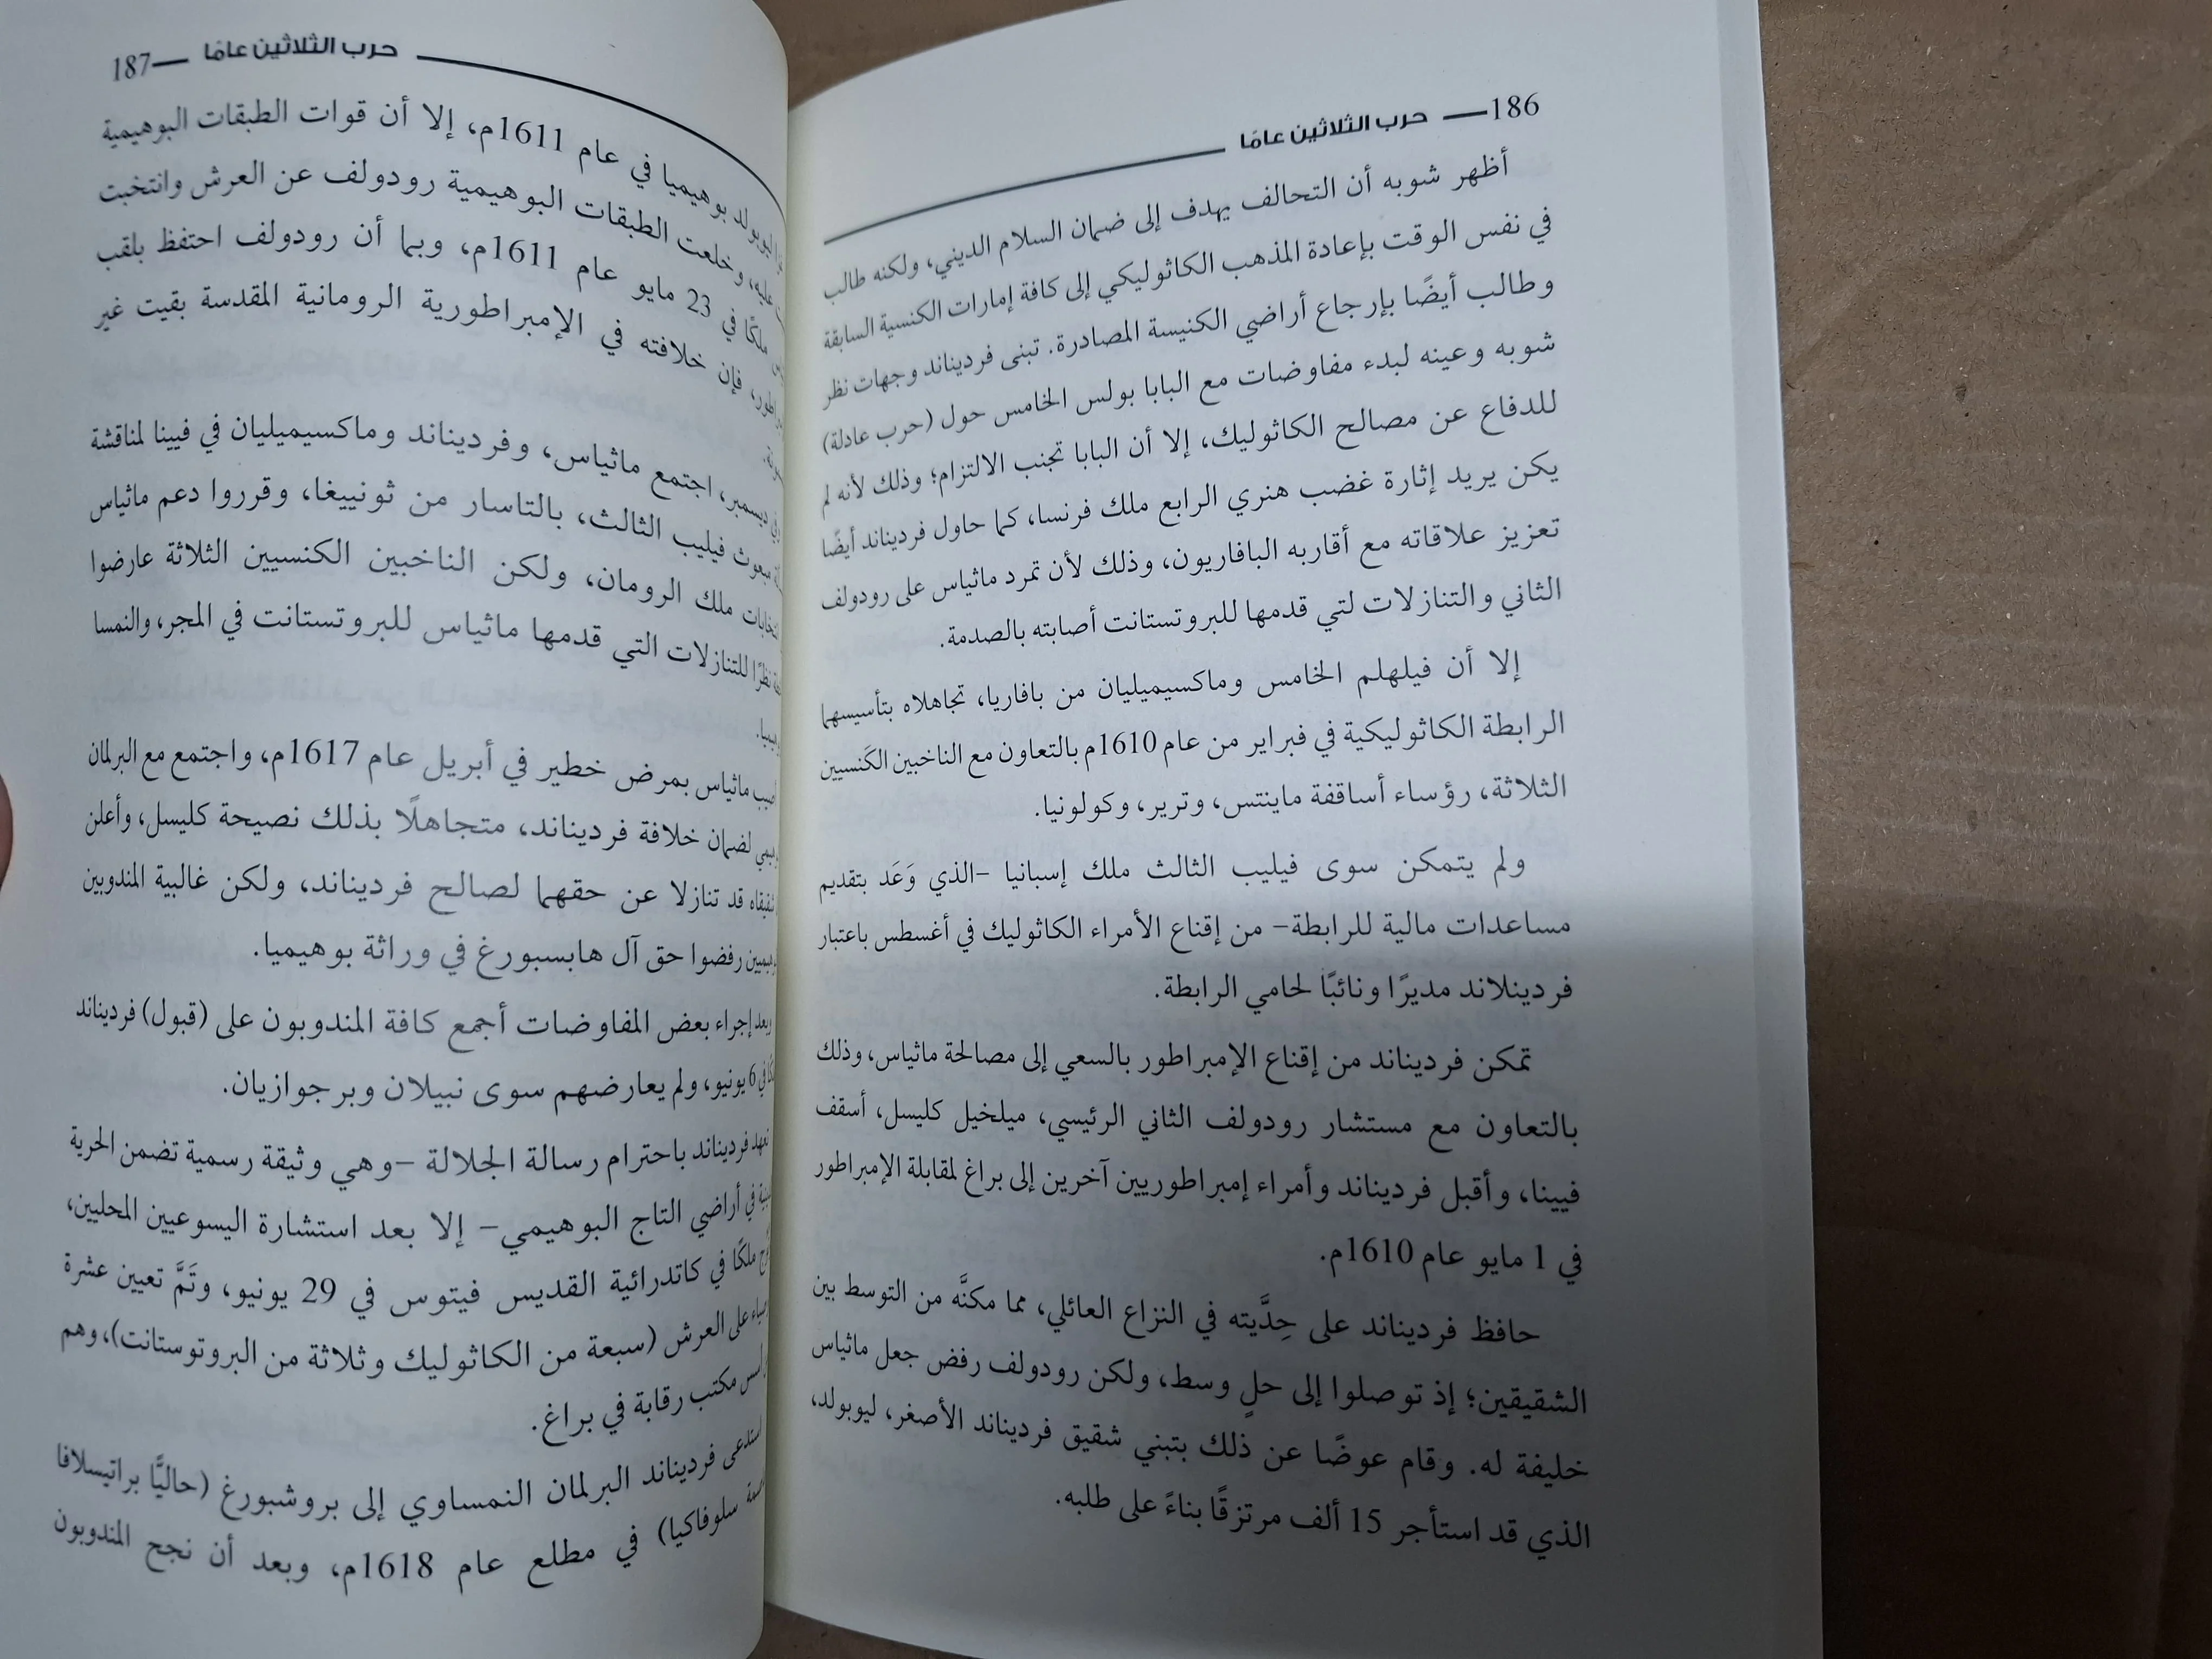 186 — حرب الثلاثين عامًا
أظهر شوبه أن التحالف يهدف إلى ضمان السلام الديني، ولكنه طالب
في نفس الوقت بإعادة المذهب الكاثوليكي إلى كافة إمارات الكنسية السابقة
وطالب أيضًا بإرجاع أراضي الكنيسة المصادرة. تبنى فرديناند وجهات نظر
شوبه وعينه لبدء مفاوضات مع البابا بولس الخامس حول (حرب عادلة)
للدفاع عن مصالح الكاثوليك، إلا أن البابا تجنب الالتزام؛ وذلك لأنه لم
يكن يريد إثارة غضب هنري الرابع ملك فرنسا، كما حاول فرديناند أيضًا
تعزيز علاقاته مع أقاربه البافاريون، وذلك لأن تمرد ماثياس على رودولف
الثاني والتنازلات لتي قدمها للبروتستانت أصابته بالصدمة.
إلا أن فيلهلم الخامس وماكسيميليان من بافاريا، تجاهلاه بتأسيسهما
الرابطة الكاثوليكية في فبراير من عام 1610م بالتعاون مع الناخبين الكَنسيين
الثلاثة، رؤساء أساقفة ماينتس، وترير، وكولونيا.
ولم يتمكن سوى فيليب الثالث ملك إسبانيا –الذي وَعَد بتقديم
مساعدات مالية للرابطة– من إقناع الأمراء الكاثوليك في أغسطس باعتبار
فردينلاند مديرًا ونائبًا لحامي الرابطة.
تمكن فرديناند من إقناع الإمبراطور بالسعي إلى مصالحة ماثياس، وذلك
بالتعاون مع مستشار رودولف الثاني الرئيسي، ميلخيل كليسل، أسقف
فيينا، وأقبل فرديناند وأمراء إمبراطوريين آخرين إلى براغ لمقابلة الإمبراطور
في 1 مايو عام 1610م.
حافظ فرديناند على حِدَّيته في النزاع العائلي، مما مكنَّه من التوسط بين
الشقيقين؛ إذ توصلوا إلى حلٍ وسط، ولكن رودولف رفض جعل ماثياس
خليفة له. وقام عوضًا عن ذلك بتبني شقيق فرديناند الأصغر، ليوبولد،
الذي قد استأجر 15 ألف مرتزقًا بناءً على طلبه.
حرب الثلاثين عامًا — 187
ليوبولد بوهيميا في عام 1611م، إلا أن قوات الطبقات البوهيمية
عليه، وخلعت الطبقات البوهيمية رودولف عن العرش وانتخبت
ملكًا في 23 مايو عام 1611م، وبما أن رودولف احتفظ بلقب
فإن خلافته في الإمبراطورية الرومانية المقدسة بقيت غير
ديسمبر، اجتمع ماثياس، وفرديناند وماكسيميليان في فيينا لمناقشة
مبعوث فيليب الثالث، بالتاسار من ثونييغا، وقرروا دعم ماثياس
ملك الرومان، ولكن الناخبين الكنسيين الثلاثة عارضوا
نظرًا للتنازلات التي قدمها ماثياس للبروتستانت في المجر، والنمسا
ماثياس بمرض خطير في أبريل عام 1617م، واجتمع مع البرلمان
لضمان خلافة فرديناند، متجاهلًا بذلك نصيحة كليسل، وأعلن
قد تنازلا عن حقهما لصالح فرديناند، ولكن غالبية المندوبين
رفضوا حق آل هابسبورغ في وراثة بوهيميا.
وبعد إجراء بعض المفاوضات أجمع كافة المندوبون على (قبول) فرديناند
في 6 يونيو، ولم يعارضهم سوى نبيلان وبرجوازيان.
فرديناند باحترام رسالة الجلالة –وهي وثيقة رسمية تضمن الحرية
في أراضي التاج البوهيمي– إلا بعد استشارة اليسوعيين المحليين،
ملكًا في كاتدرائية القديس فيتوس في 29 يونيو، وتَمَّ تعيين عشرة
على العرش (سبعة من الكاثوليك وثلاثة من البروتوستانت)، وهم
مكتب رقابة في براغ.
فرديناند البرلمان النمساوي إلى بروشبورغ (حاليًّا براتيسلافا
سلوفاكيا) في مطلع عام 1618م، وبعد أن نجح المندوبون